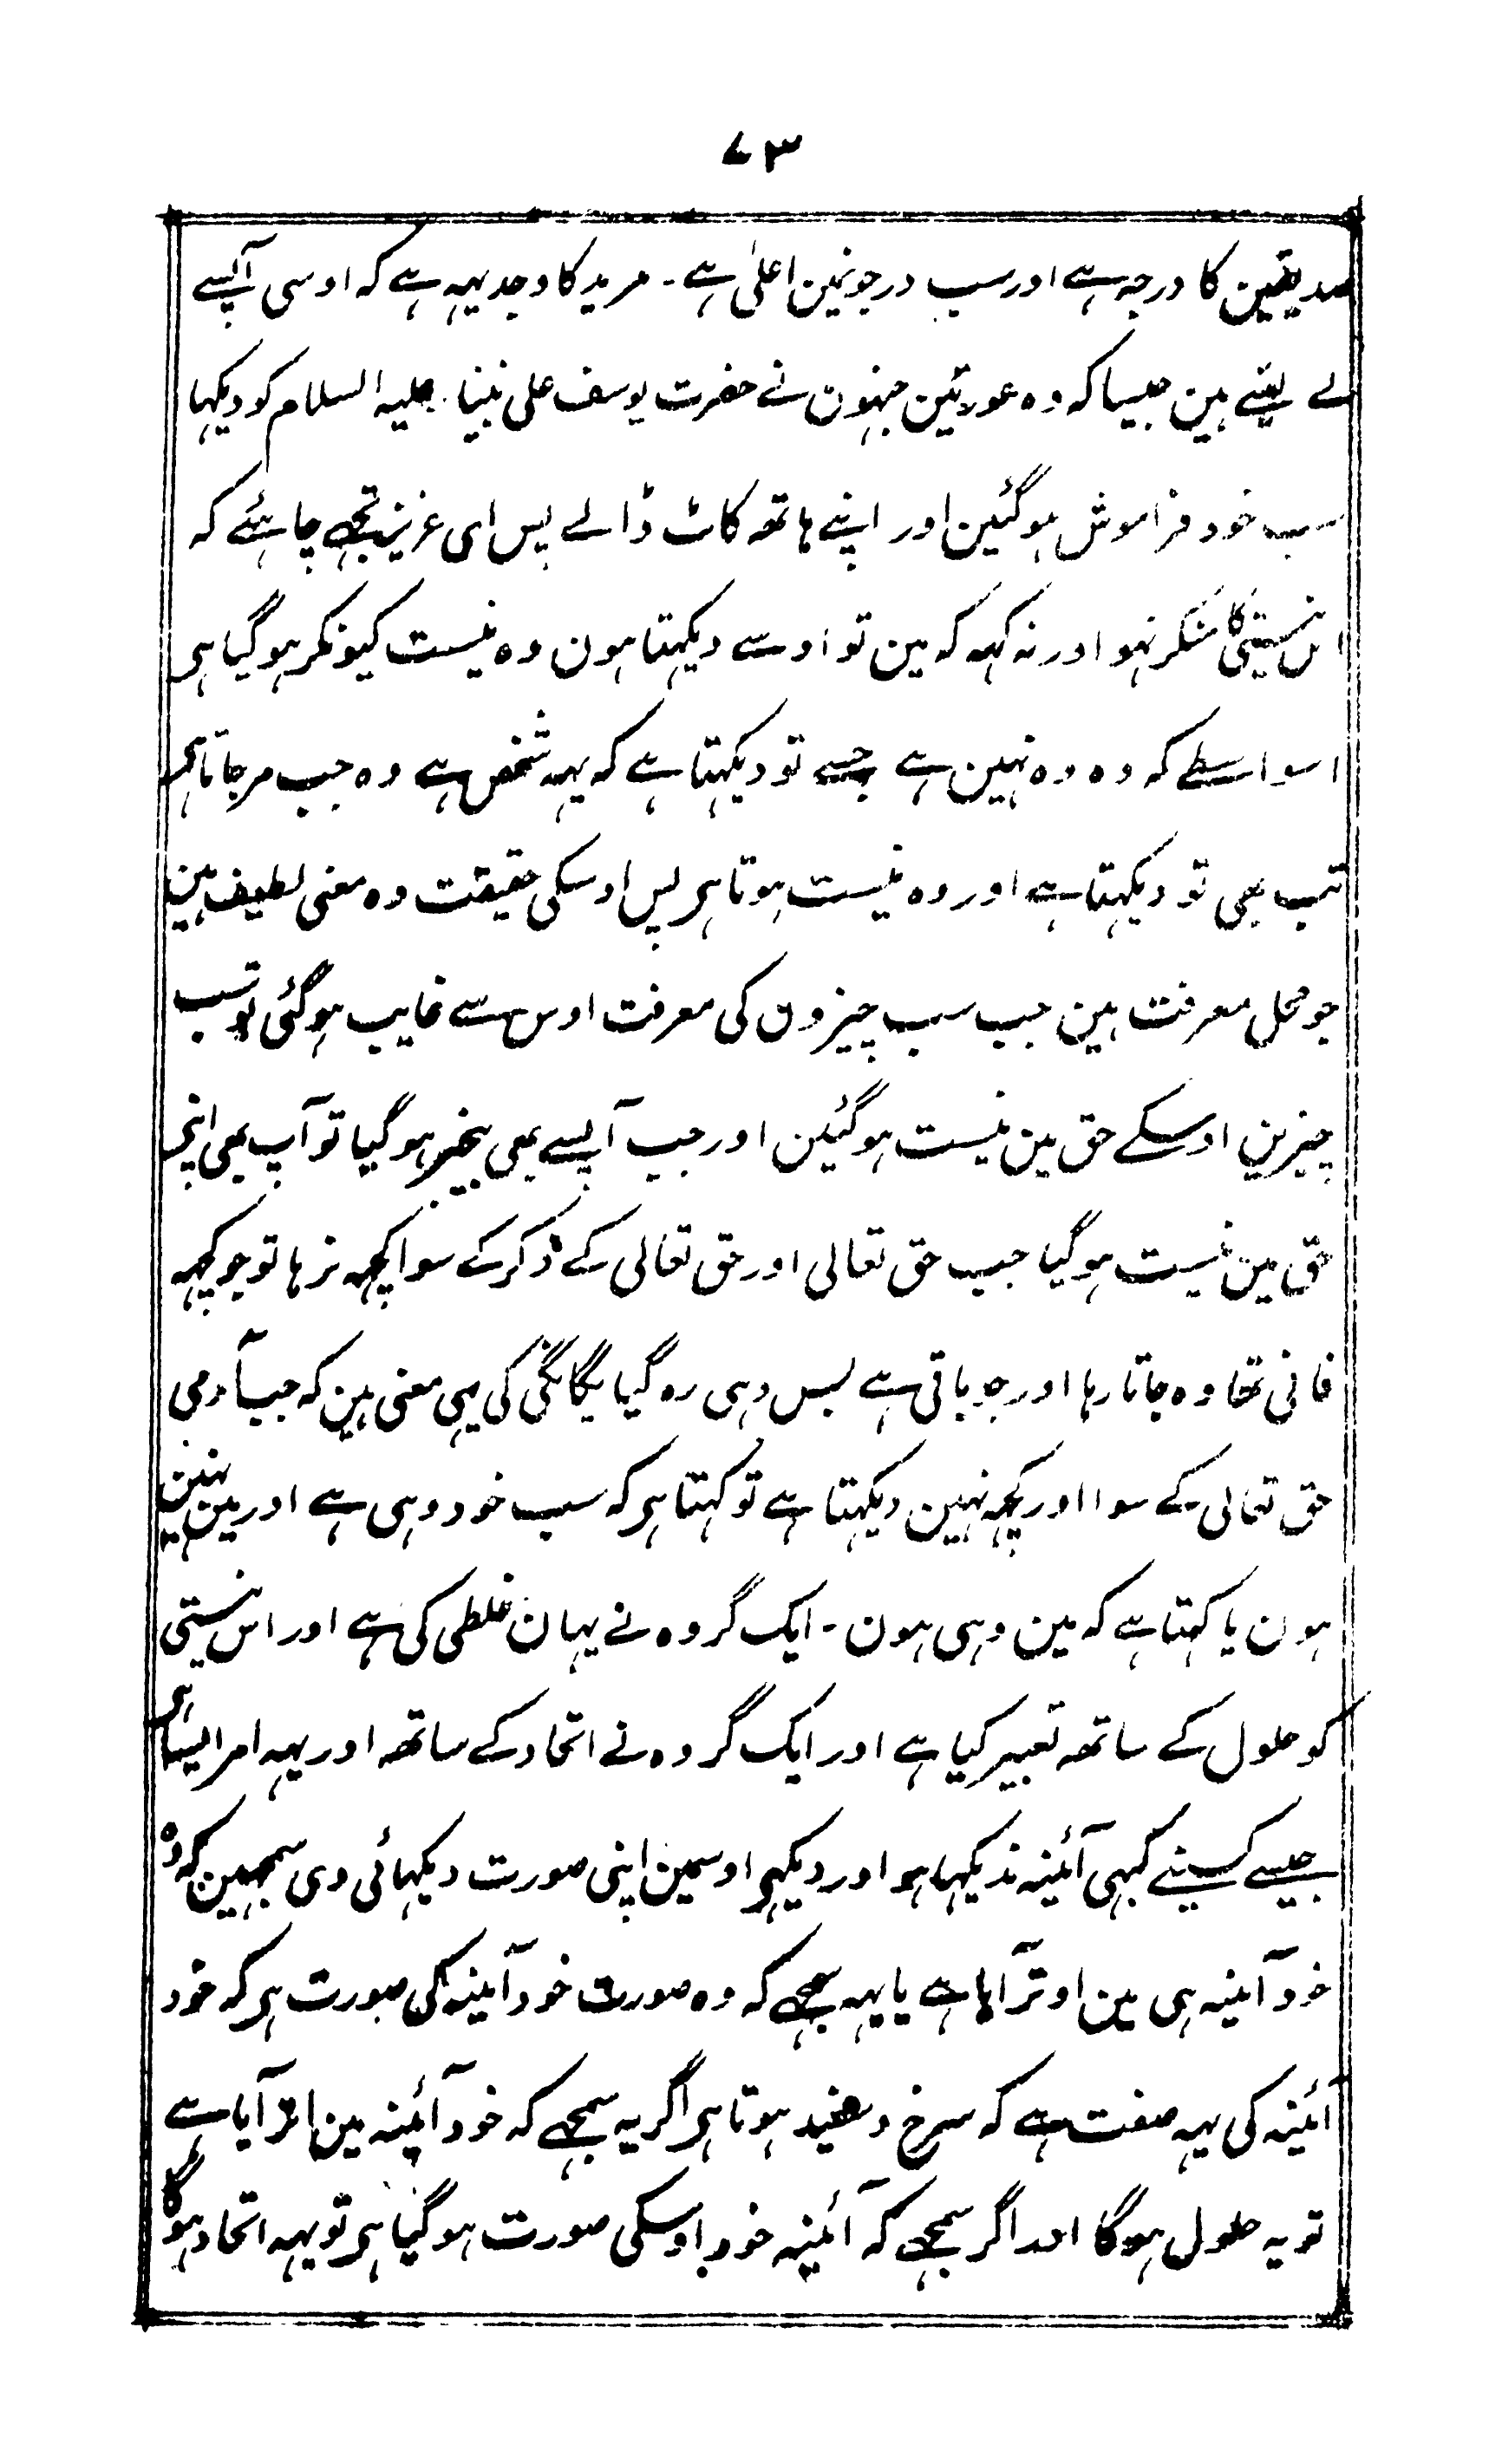 ۷۳
صدیقین کا درجہ ہے اور سب درجونمین اعلیٰ ہے - مرید کا وجد یہہ ہے کہ اوسی آپسے
لے لیتے ہین جیسا کہ وہ عورتین جنہون نے حضرت یوسف علی نبینا علیہ السلام کو دیکہا
سب خود فراموش ہوگئین اور اپنے ہاتھہ کاٹ ڈالے پس ای عزیز تجھے چاہئے کہ
اس نیستی کا منکر نہو اور نہ کہہ کہ مین تو اوسے دیکہتا ہون وہ نیست کیونکر ہوگیا ہی
اسواسطے کہ وہ وہ نہین ہے جسے تو دیکہتا ہے کہ یہہ شخص ہے وہ جب مرجاتا ہی
تب بھی تو دیکہتا ہے اور وہ نیست ہوتا ہی پس اوسکی حقیقت وہ معنی لطیف ہین
جو محل معرفت ہین جب سب چیزون کی معرفت اوس سے غایب ہوگئی تو سب
چیزین اوسکے حق مین نیست ہوگئین اور جب آپسے بھی بیخبر ہوگیا تو آپ بھی اپنی
حق مین نیست ہوگیا جب حق تعالی اور حق تعالی کے ذکر کے سوا کچہہ نرہا تو جو کچہہ
فانی تھا وہ جاتا رہا اور جو باقی ہے بس وہی رہ گیا یگانگی کی یہی معنی ہین کہ جب آدمی
حق تعالی کے سوا اور کچہہ نہین دیکہتا ہے تو کہتا ہی کہ سب خود وہی ہے اور مین نہین
ہون یا کہتا ہے کہ مین وہی ہون - ایک گروہ نے یہان غلطی کی ہے اور اس نیستی
کو حلول کے ساتھہ تعبیر کیا ہے اور ایک گروہ نے اتحاد کے ساتھہ اور یہہ امر ایسا ہی
جیسے کسینے کبہی آئینہ ندیکہا ہو اور دیکہی اوسمین اپنی صورت دیکہائی دی سمجہین کہ وہ
خود آئینہ ہی مین اوتر آیا ہے یا یہہ سمجھے کہ وہ صورت خود آئینہ کی صورت ہی کہ خود
آئینہ کی یہہ صفت ہے کہ سرخ و سفید ہوتا ہی اگر یہ سمجھے کہ خود آئینہ مین اتر آیا ہے
تو یہ حلول ہوگا اور اگر سمجھے کہ آئینہ خود اوسکی صورت ہوگیا ہی تو یہہ اتحاد ہوگا